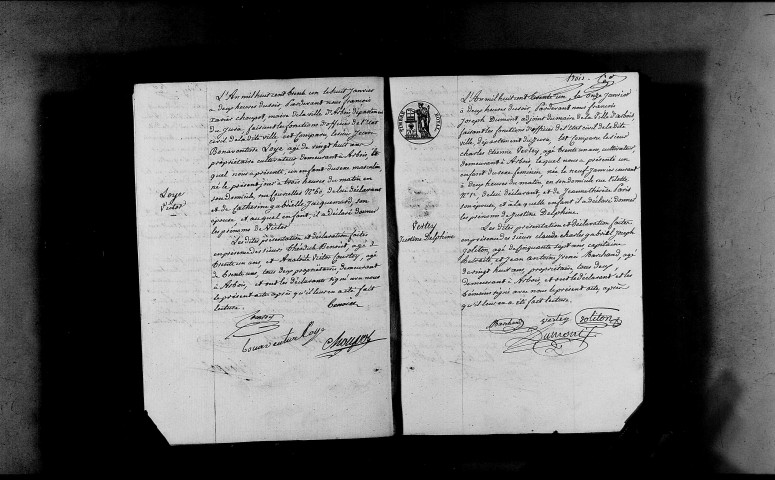 L'An mil huit cent trente un le huit Janvier
à deux heures du soir, Pardevant nous françois
Xavier Chozet, maire de la ville d'Arbois département
du Jura, faisant les fonctions d'officier de l'Etat
civil de la dite ville est comparu le sieur Jean
Bonaventure Loye agé de vingt huit ans
propriétaire cultivateur demeurant à Arbois le
quel nous a présenté, un enfant du sexe masculin
né le présent jour à trois heures du matin en
son domicile, rue Courcelles N° 60, de lui déclarant
et de Catherine gabrielle Jacquemard, son
épouse et auquel enfant, il a déclaré donner
les prénoms de Victor
Les dites présentation et déclaration faites
en présence des sieurs Benoit, agé de
trente un ans et Anatoile Victor Courtoy, agé
de trente ans, tous deux propriétaires demeurant
à Arbois, et ont les déclarants signé avec nous
le présent acte après qu'il leur en a été fait
lecture.
Loye
Victor
Benoit
bonaventure Loye
trois.
L'An mil huit cent trente un le onze Janvier
à deux heures du soir, Pardevant nous françois
Joseph Dumont, adjoint du maire de la Ville d'arbois
faisant les fonctions d'officier de l'Etat civil de la dite
ville, département du Jura, Est comparu le sieur
charles Etienne Verley, agé trente un ans, cultivateur,
demeurant à Arbois, lequel nous a présenté un
enfant du sexe féminin, née le neuf Janvier courant
à deux heures du matin, en son domicile rue
de lui déclarant, et de Jeanne thérèse
son épouse, et à la quelle enfant il a déclaré donner
les prénoms de Justine Delphine.
Les dites présentation et déclaration faites
en présence des sieurs claude charles gabriel Joseph
agé de cinquante sept ans capitaine
en retraite et Jean Antoine Marchand, agé
de vingt huit ans, propriétaire, tous deux
demeurant à Arbois, et ont le déclarant et les
témoins signé avec nous le présent acte, après
qu'il leur en a été fait lecture.
TIMBRE ROYAL
Verley
Justine Delphine
Marchand verley
Dumont